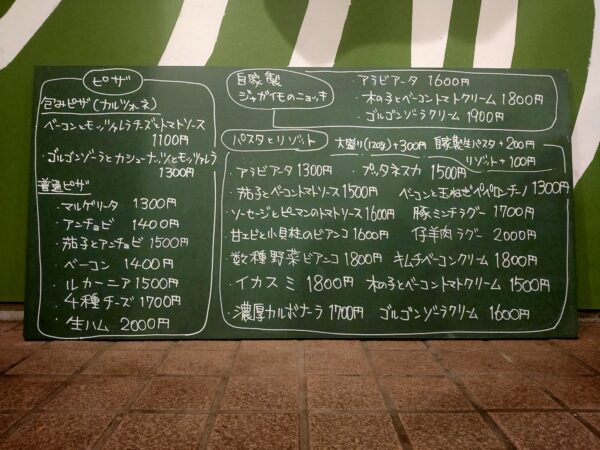 ピザ
包みピザ(カルツォーネ)
ベーコンとモッツァレラチーズとトマトソース
1100円
・ゴルゴンゾーラとカシューナッツとモッツァレラ
1300円
普通ピザ
・マルゲリータ 1300円
・アンチョビ 1400円
・茄子とアンチョビ 1500円
・ベーコン 1400円
・ルカーニア 1500円
・4種チーズ 1700円
・生ハム 2000円
自家製
ジャガイモのニョッキ
・アラビアータ 1600円
・木の子とベーコントマトクリーム 1800円
・ゴルゴンゾーラクリーム 1900円
パスタとリゾット
大盛り(120g)+300円
自家製生パスタ+200円
リゾット+100円
・アラビアータ 1300円 プッタネスカ 1500円
・茄子とベーコントマトソース 1500円 ベーコンと玉ねぎペペロンチーノ 1300円
・ソーセージとピーマンのトマトソース 1600円 豚ミンチラグー 1700円
・甘エビと小貝柱のビアンコ 1600円 仔羊肉ラグー 2000円
・数種野菜ビアンコ 1800円 キムチベーコンクリーム 1800円
・イカスミ 1800円 木の子とベーコントマトクリーム 1500円
・濃厚カルボナーラ 1700円 ゴルゴンゾーラクリーム 1600円